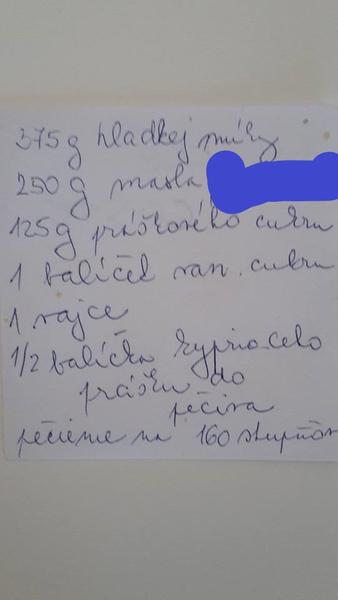 375g hladkej múky
250 g masla
125g práškového cukru
1 balíček van. cukru
1 vajce
1/2 balíčka kypriaceho
prášku do
pečiva
pečieme na 160 stupňov